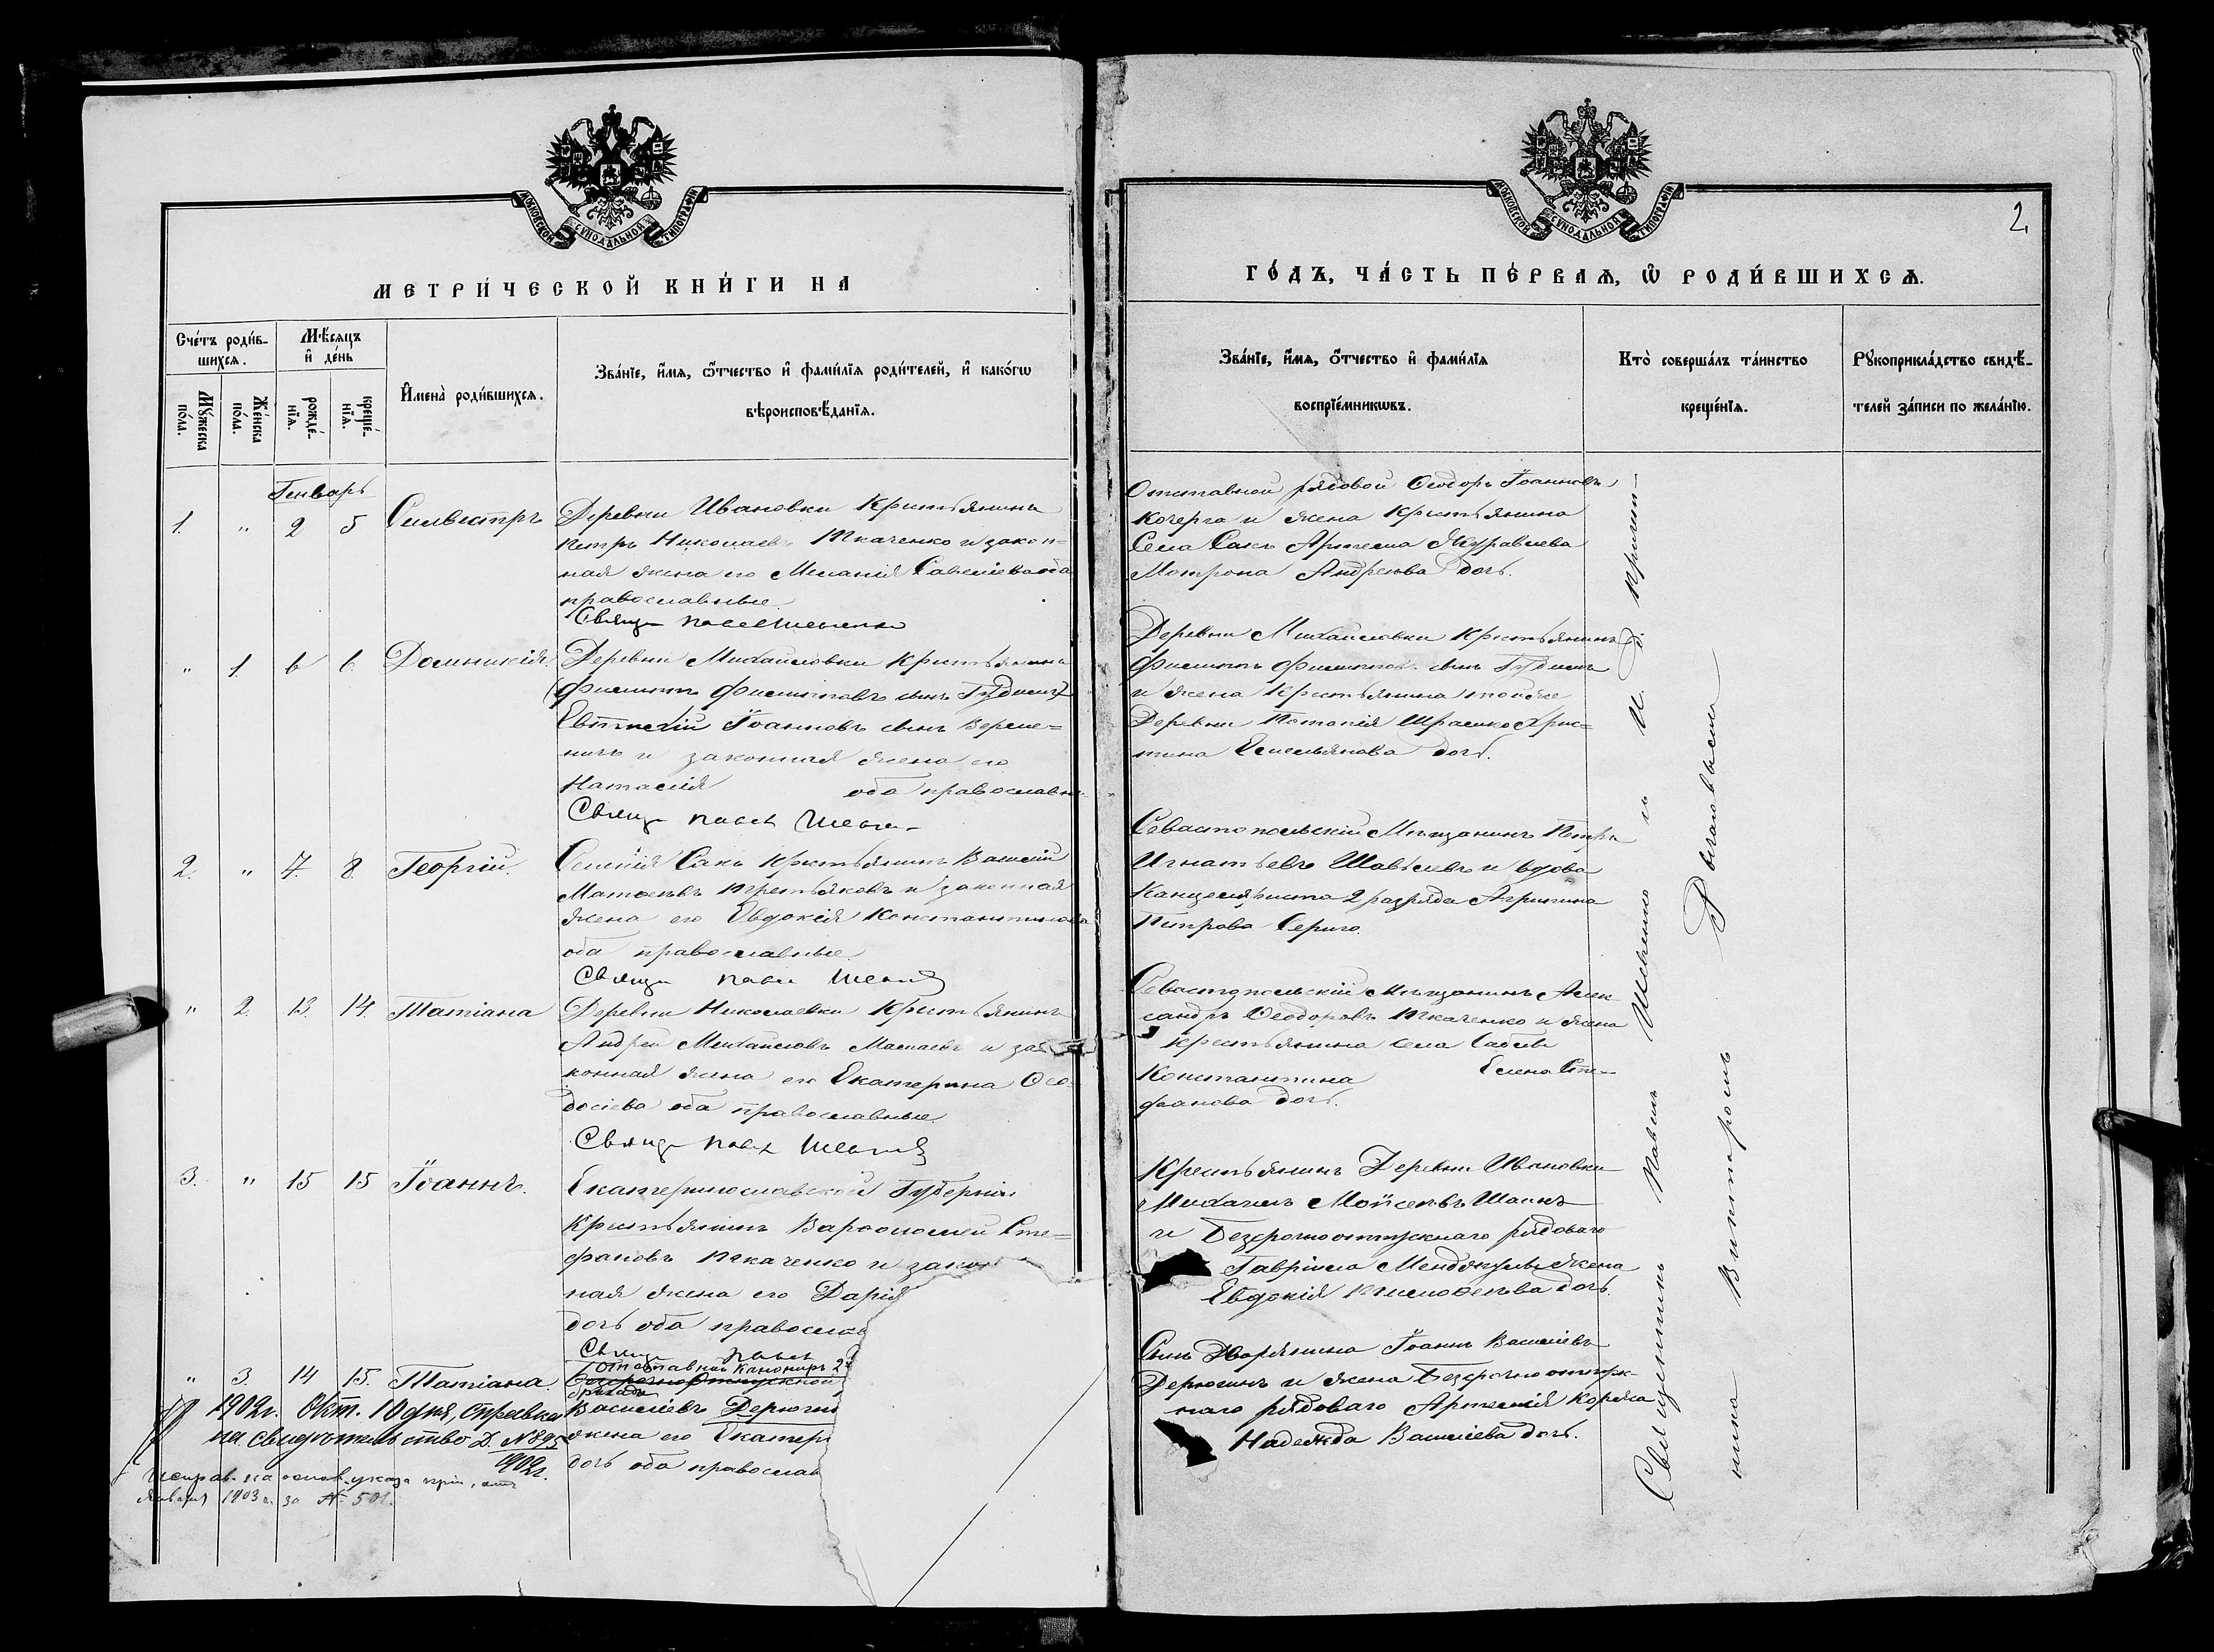 МОСКОВСКОЙ СѴНОДАЛЬНОЙ ТИПОГРАФІИ
МЕТРИ́ЧЕСКОЙ КНИ́ГИ НА
Сче́тъ роди́в-
шихсѧ.
Мѣ́сяцъ
и҆ де́нь
Мꙋ́жеска
по́ла.
Же́нска
по́ла.
рожде́-
нїѧ.
креще́-
нїѧ.
И҆мена̀ роди́вшихсѧ.
Зва́нїе, и҆́мѧ, ѻ҆́тчество и҆ фами́лїѧ роди́телей, и҆ како́гѡ
вѣроисповѣ́данїѧ.
Генварь
1. " 2 5 Силвестръ
Деревни Ивановки Крестьянинъ
Петръ Николаевъ Ткаченко и закон=
ная жена его Меланія Савеліева оба
православные
Свящ Павел Шевченко
" 1. 6 6. Домникія.
Деревни Михайловки Крестьянина
(Филиппъ Филипповъ сынъ
Евтихій Іоанновъ сынъ Верме=
ничъ и законная жена его
Наталія оба православны
Свящ Павел
2. " 7. 8. Георгій.
Селенія Сакъ Крестьянинъ Василій
Матвѣевъ Третьяковъ и законная
жена его Евдокія Константинова
оба православные
Свящ Павел
" 2. 13. 14. Татіана
Деревни Николаевки Крестьянинъ
Андрей Михайловъ и за
конная жена его Екатерина Ѳео-
досіева оба православные.
Свящ Павел
3. " 15 15 Іоаннъ.
Екатеринославской Губерніи
Крестьянинъ Варѳоломей Сте=
фановъ Ткаченко и закон
ная жена его Дарія
дочь оба православ
Свящ Павел
" 3. 14 15. Татіана.
Отставной Канониръ 2й
Безсрочноотпускной
бригады
Василіевъ Дерюгин
жена его Екатер
дочь оба православ
1902г. Окт. 10 дня, справка
на свидѣтельство Д. № 895
1902г.
Исправ. на основ. указа
Января 1903 г. за № 501.
2
ГО́ДЪ, ЧА́СТЬ ПЕ́РВАѦ, Ѽ РОДИ́ВШИХСѦ.
Зва́нїе, и҆́мѧ, ѻ҆́тчество и҆ фами́лїѧ
воспрїе́мникѡвъ.
Кто̀ соверша́лъ та́инство
креще́нїѧ.
Рꙋкоприкла́дство свидѣ́-
телей за́писи по жела́нїю.
Отставной рядовой Ѳеодоръ Іоанновъ
Кочерга и жена Крестьянина
Села Сакъ Артема Журавлева
Матрона Андреева дочь.
Деревни Михайловки Крестьянинъ
Филиппъ Филипповъ сынъ
и жена Крестьянина тойже
Деревни Потапія Хрис=
тина Емельянова дочь.
Севастопольскій Мѣщанинъ Петръ
Игнатьевъ и вдова
Канцеляриста 2 разряда Агрипина
Петрова
Севастопольскій Мѣщанинъ Алек-
сандръ Ѳеодоровъ Ткаченко и жена
Крестьянина села
Константина Елена Сте-
фанова дочь.
Крестьянинъ Деревни Ивановки
Михаилъ Мойсеевъ
и Безсрочноотпускнаго рядоваго
Гавріила жена
Евдокія Тимоѳеева дочь.
Сынъ Дворянина Іоаннъ Василіевъ
Дерюгинъ и жена Безсрочноотпуск-
наго рядоваго Артемія
Надежда Василіева дочь.
Священникъ Павелъ Шевченко и И. д. причет-
ника Викторъ